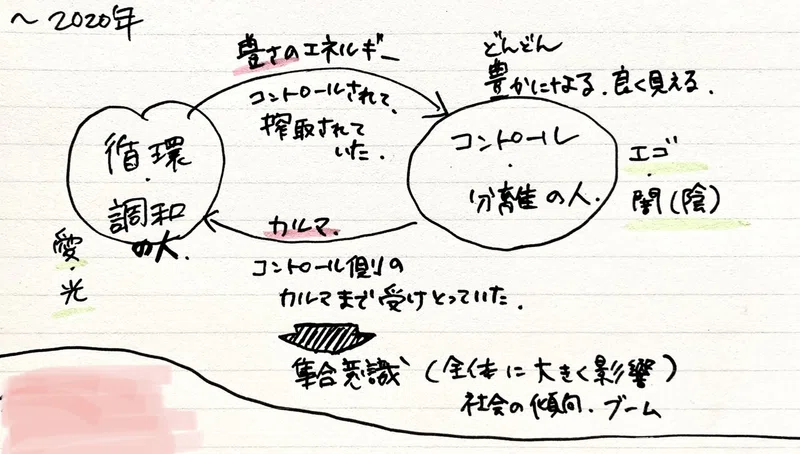 〜2020年
豊さのエネルギー
コントロールされて、
搾取されて
いた.
どんどん
豊かになる.良く見える.
循環
・
調和
の人.
愛・
光
コントロール
・
分離の人.
エゴ
・
闇(陰)
カルマ.
コントロール側の
カルマまで受けとっていた.
集合意識 (全体に大きく影響)
社会の傾向.ブーム